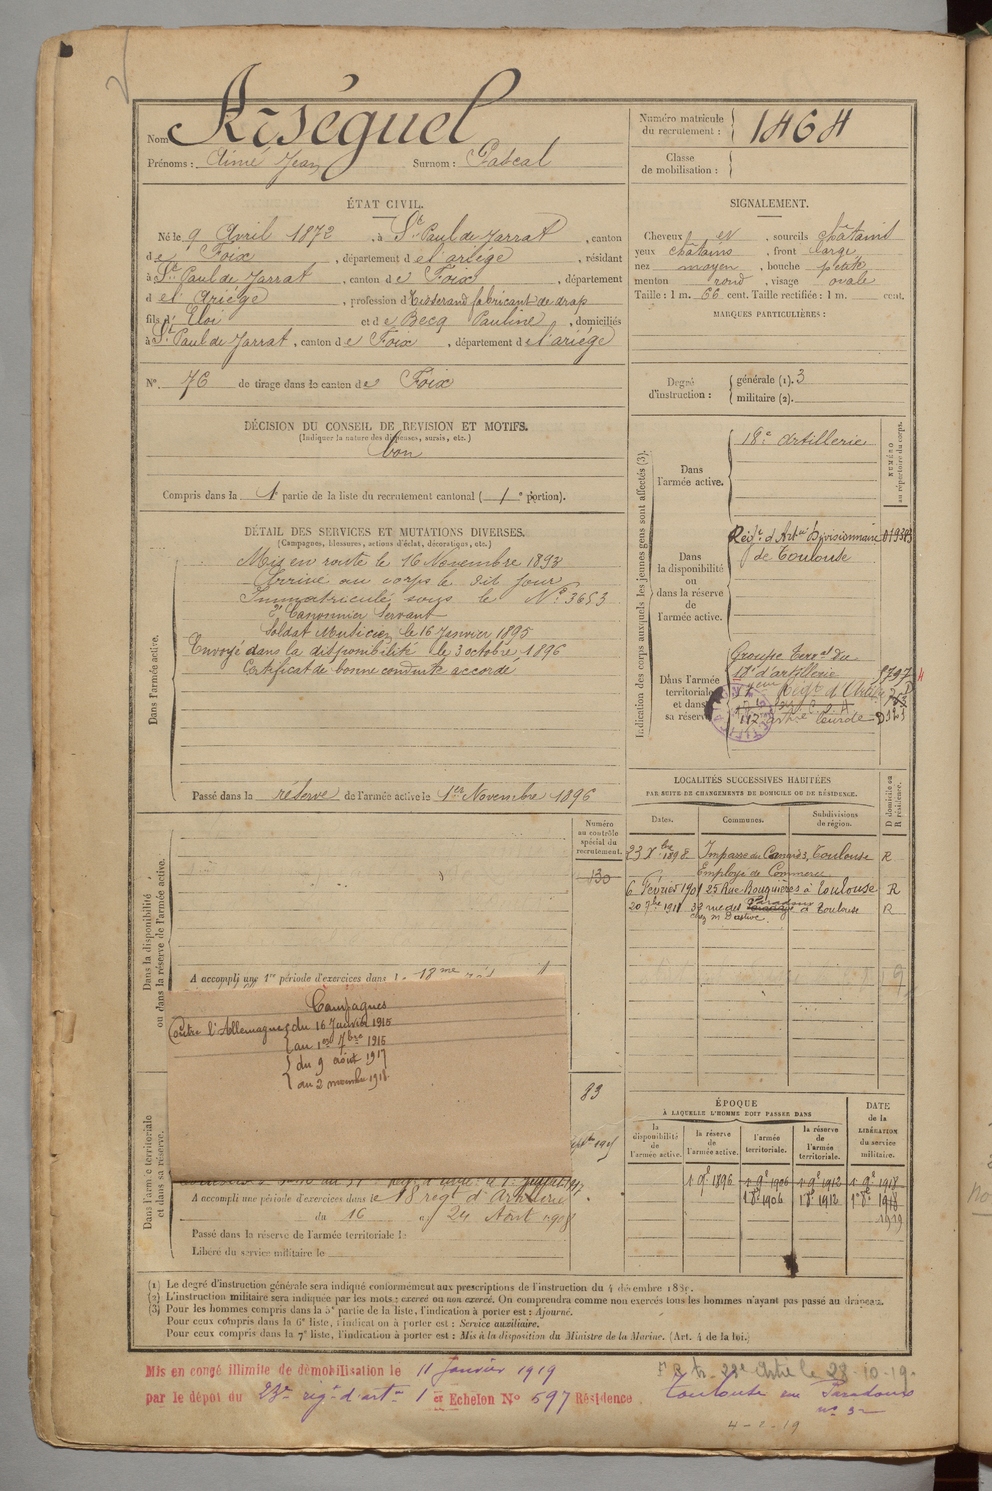 Nom Arséguel
Prénoms : Aimé Jean Surnom : Pascal
Numéro matricule du recrutement : 1464
Classe de mobilisation :
ÉTAT CIVIL.
Né le 9 Avril 1872, à St Paul de Jarrat, canton
de Foix, département de l'ariége, résidant
à St Paul de Jarrat, canton de Foix, département
de l'Ariége, profession de Tisserand fabricant de drap
fils d'Eloi et de Becq Pauline, domiciliés
à St Paul de Jarrat, canton de Foix, département de l'ariége
No. 76 de tirage dans le canton de Foix
SIGNALEMENT.
Cheveux et, sourcils châtains
yeux châtains, front large
nez moyen, bouche petite
menton rond, visage ovale
Taille : 1 m. 66 cent. Taille rectifiée : 1 m. cent.
MARQUES PARTICULIÈRES :
Degré d'instruction : générale (1). 3
militaire (2).
DÉCISION DU CONSEIL DE REVISION ET MOTIFS.
(Indiquer la nature des dispenses, sursis, etc.)
bon
Compris dans la 1e partie de la liste du recrutement cantonal (1e portion).
DÉTAIL DES SERVICES ET MUTATIONS DIVERSES.
(Campagnes, blessures, actions d'éclat, décorations, etc.)
Dans l'armée active.
Mis en route le 16 Novembre 1893
Arrivé au corps le dit jour
Immatriculé sous le No 3653
2e Canonnier Servant
Soldat Musicien le 16 Janvier 1895
Envoyé dans la disponibilité le 3 octobre 1896
Certificat de bonne conduite accordé
Passé dans la réserve de l'armée active le 1er Novembre 1896
Indication des corps auxquels les jeunes gens sont affectés (3).
NUMÉRO au répertoire du corps.
Dans l'armée active.
18e Artillerie
Dans la disponibilité ou dans la réserve de l'armée active.
Regt d'Arte Divisionnaire
de Toulouse
Dans l'armée territoriale et dans sa réserve
Groupe Terral du
18e d'artillerie
117 artie lourde
LOCALITÉS SUCCESSIVES HABITÉES
PAR SUITE DE CHANGEMENTS DE DOMICILE OU DE RÉSIDENCE.
D domicile ou R résidence.
Dates. Communes. Subdivisions de région.
23 Xbre 1898 Impasse des Cannes, Toulouse R
Employé de Commerce
6 Février 1901 25 Rue Bouquières à Toulouse R
20 7bre 1911 32 rue des Paradoux à Toulouse R
Dans la disponibilité ou dans la réserve de l'armée active.
Numéro au contrôle spécial du recrutement.
130
A accompli une 1re période d'exercices dans le 18me
Campagnes
Contre l'Allemagne du 16 Janvier 1915
au 1er 7bre 1915
du 9 août 1917
au 2 novembre 1918
83
Dans l'armée territoriale et dans sa réserve.
A accompli une période d'exercices dans le 18 regt d'Artillerie
du 16 au 24 Août 1908
Passé dans la réserve de l'armée territoriale le
Libéré du service militaire le
ÉPOQUE
À LAQUELLE L'HOMME DOIT PASSER DANS
DATE de la LIBÉRATION du service militaire.
la disponibilité de l'armée active. la réserve de l'armée active. l'armée territoriale. la réserve de l'armée territoriale.
1 9e 1896 1 9e 1906 1 9e 1912 1 9e 1918
1 8e 1906 1 8e 1912 1 8e 1918
1919
(1) Le degré d'instruction générale sera indiqué conformément aux prescriptions de l'instruction du 4 décembre 1889.
(2) L'instruction militaire sera indiquée par les mots : exercé ou non exercé. On comprendra comme non exercés tous les hommes n'ayant pas passé au drapeau.
(3) Pour les hommes compris dans la 5e partie de la liste, l'indication à porter est : Ajourné.
Pour ceux compris dans la 6e liste, l'indication à porter est : Service auxiliaire.
Pour ceux compris dans la 7e liste, l'indication à porter est : Mis à la disposition du Ministre de la Marine. (Art. 4 de la loi.)
Mis en congé illimité de démobilisation le 11 Janvier 1919
par le dépôt du 23e régt d'artie 1er Echelon No 597 Résidence Toulouse rue Paradoux
no 32
28-10-19
4-2-19